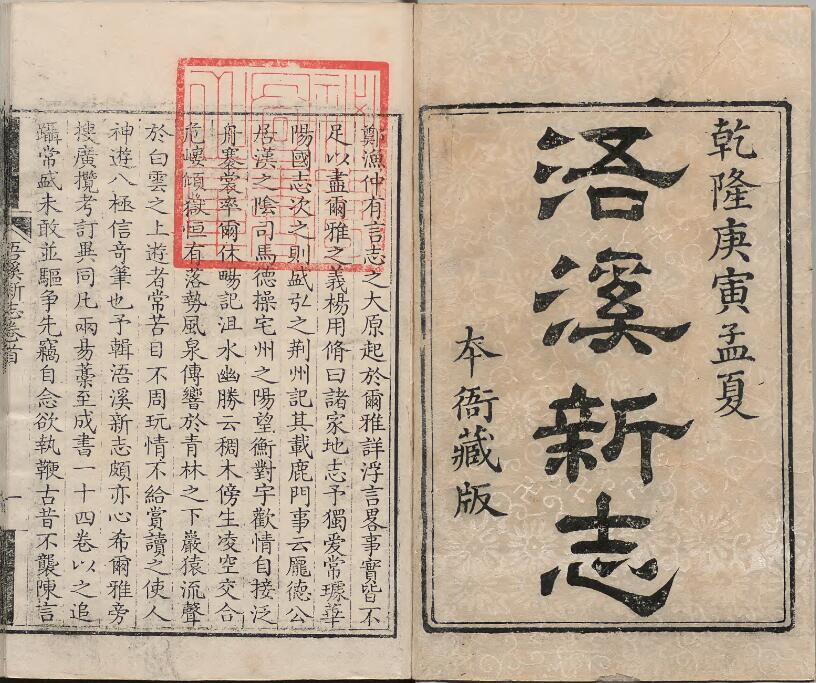 乾隆庚寅孟夏
浯溪新志
本衙藏版
鄭漁仲有言志之大原起於爾雅詳浮言畧事實皆不
足以盡爾雅之義楊用脩曰諸家地志予獨爱常璩華
陽國志次之則盛弘之荆州記其載鹿門事云龎德公
居漢之隂司馬德操宅州之陽望衡對宇歡情自接泛
舟褰裳率爾休暢記沮水幽勝云稠木傍生凌空交合
危嶁傾嶽恒有落勢風泉傳響於青林之下巖猿流聲
於白雲之上遊者常苦目不周玩情不給賞讀之使人
神遊八極信奇筆也予輯浯溪新志頗亦心希爾雅旁
搜廣攬考訂異同凡兩易藁至成書一十四卷以之追
躡常盛未敢並驅争先竊自念欲執鞭古昔不襲陳言
浯溪新志卷首
一